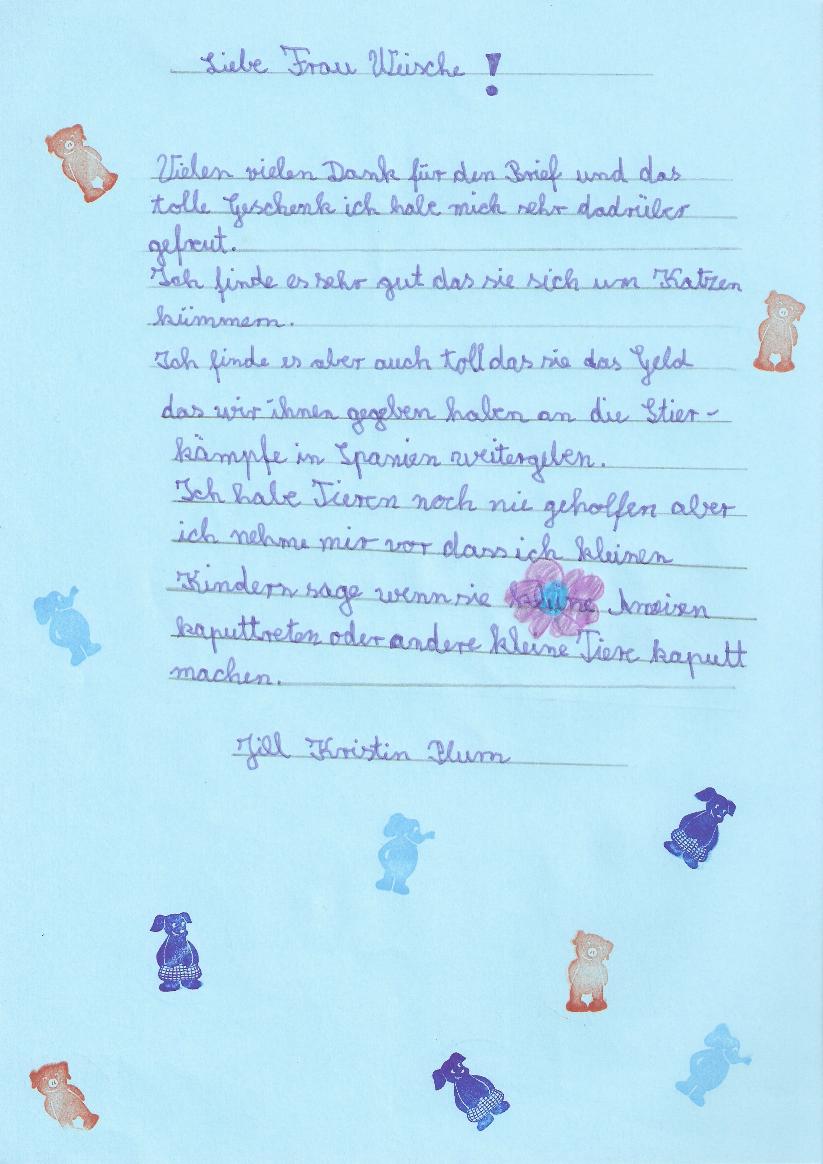 Liebe Frau Wüsche !
Vielen vielen Dank für den Brief und das
tolle Geschenk ich habe mich sehr dadrüber
gefreut.
Ich finde es sehr gut das sie sich um Katzen
kümmern.
Ich finde es aber auch toll das sie das Geld
das wir ihnen gegeben haben an die Stier-
kämpfe in Spanien weitergeben.
Ich habe Tieren noch nie geholfen aber
ich nehme mir vor dass ich kleinen
Kindern sage wenn sie Ameisen
kaputtreten oder andere kleine Tiere kaputt
machen.
Jill Kristin Plum